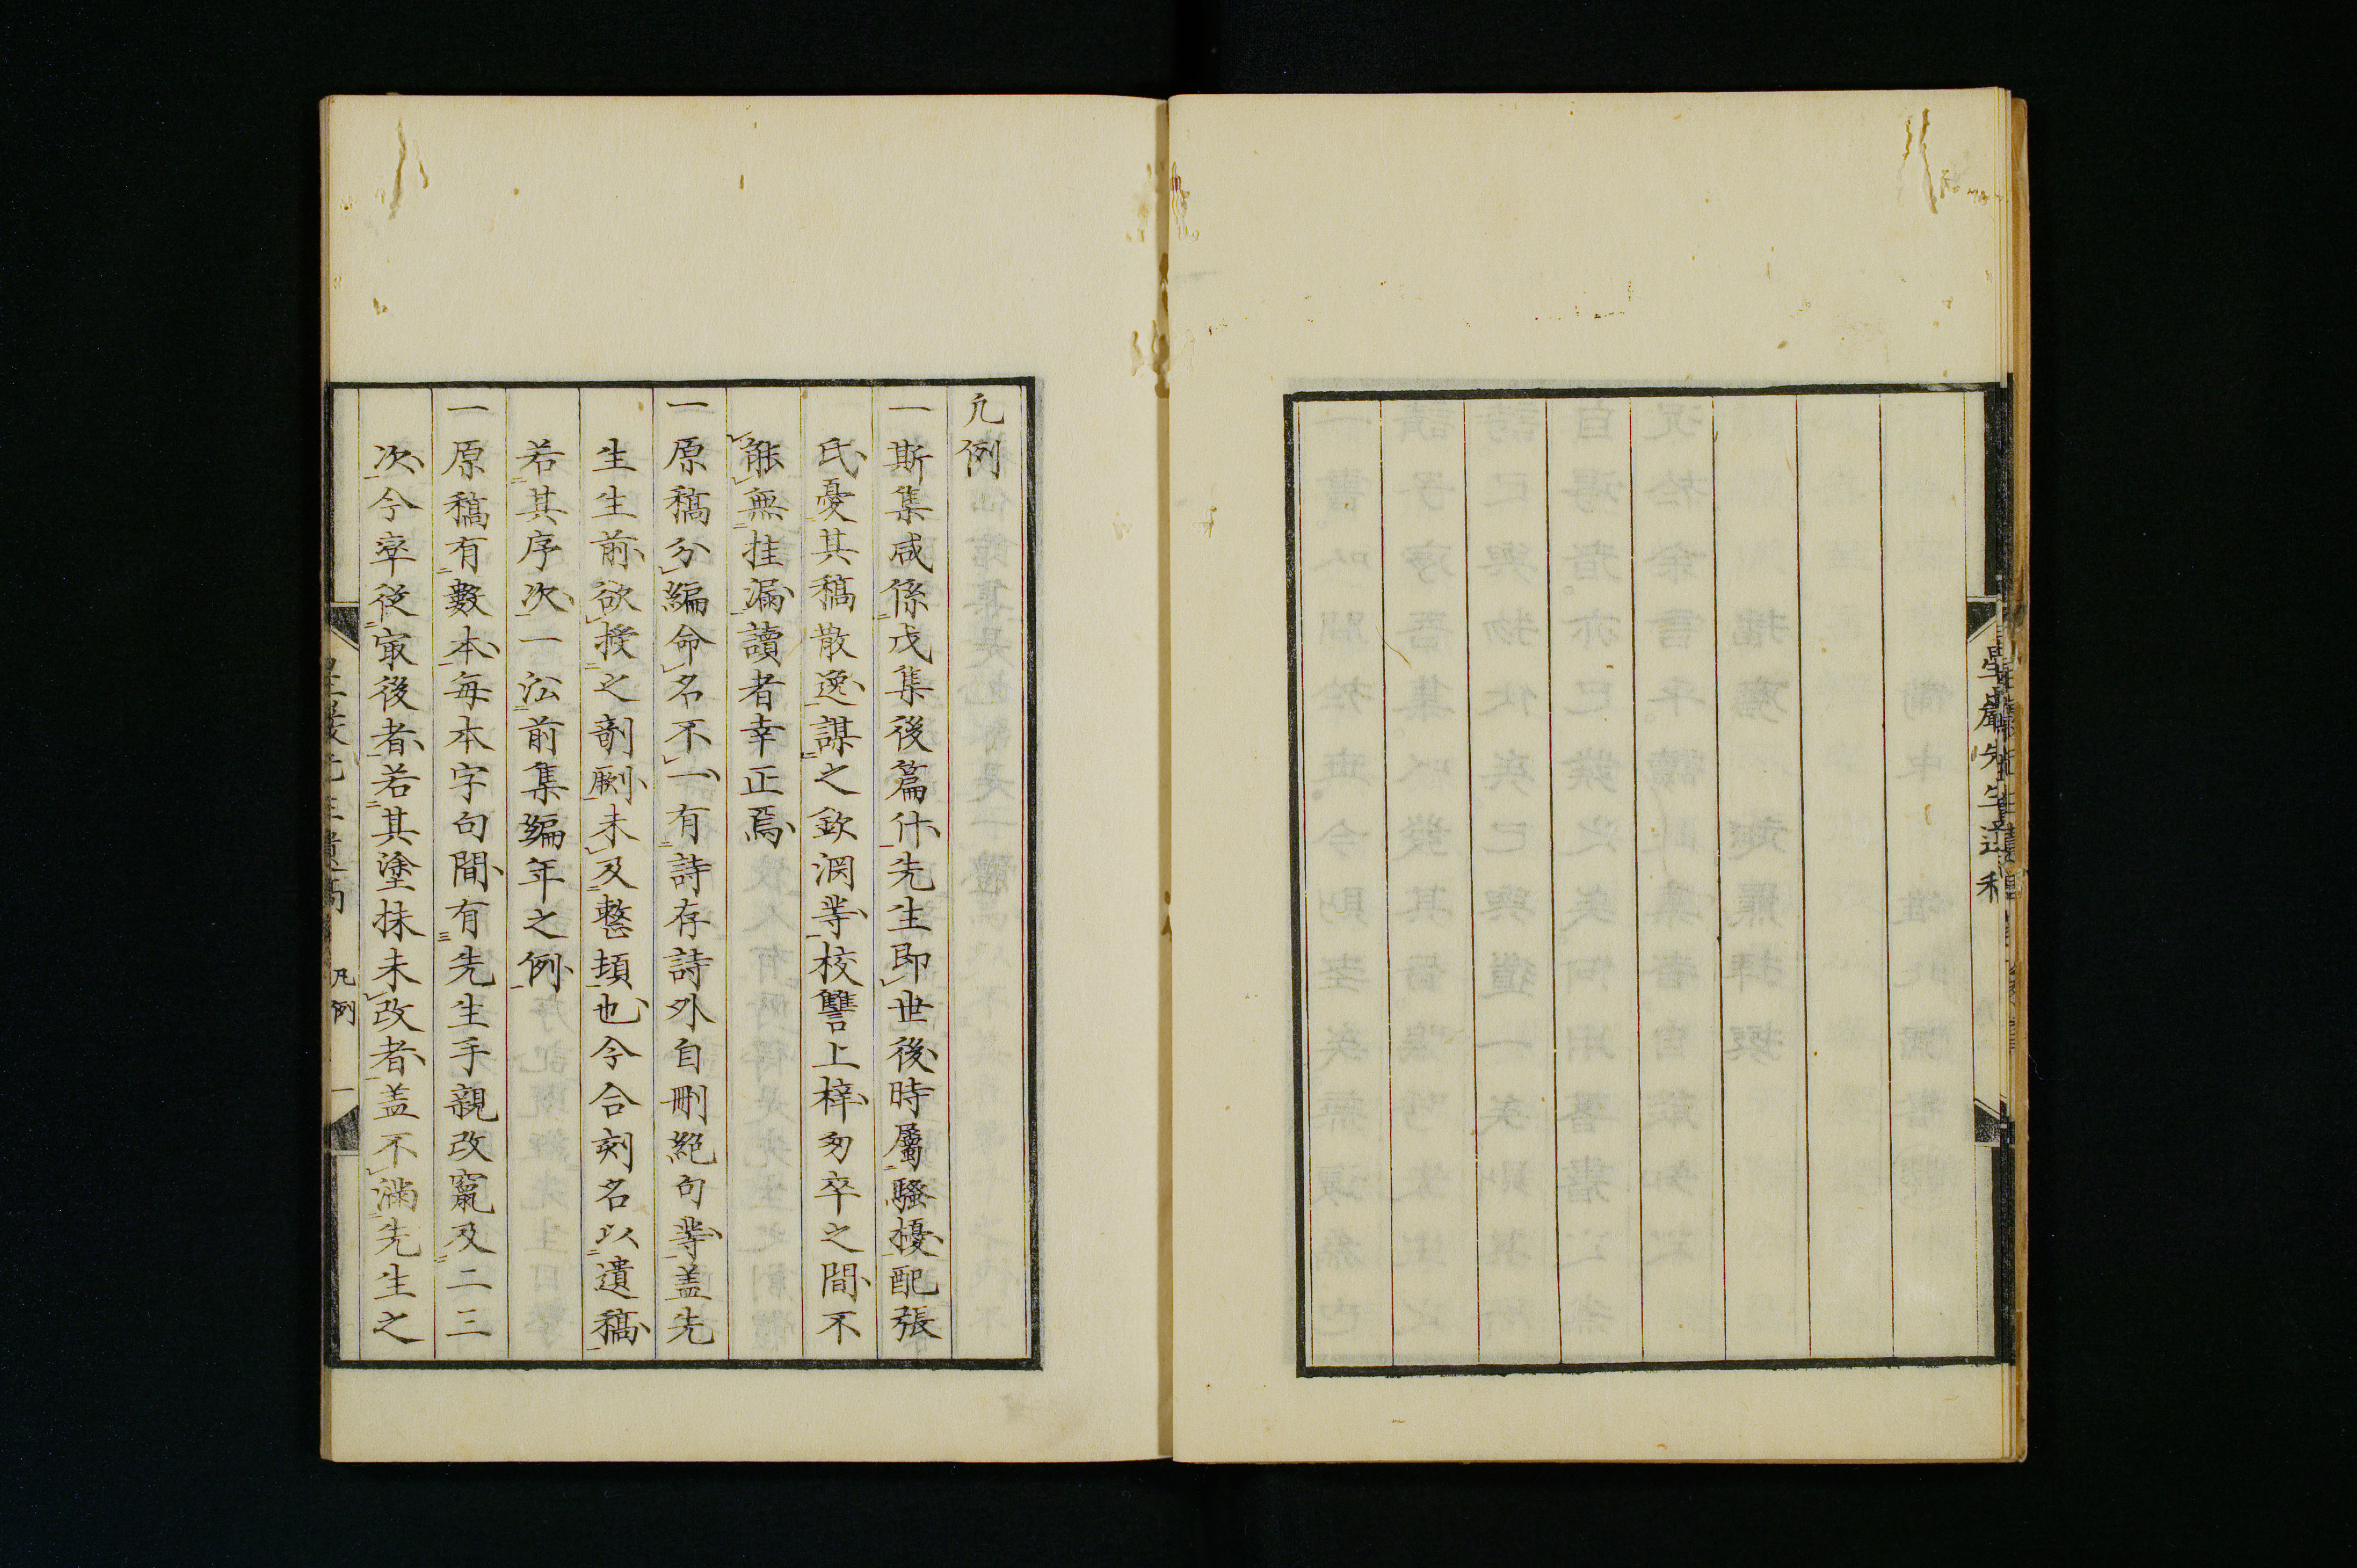 凢例
一斯集咸係戊集後篇什先生即世後時屬騷擾配張
氏憂其稿散逸謀之欽淵䓁校讐上梓匆卒之間不
能無挂漏讀者幸正焉
一原稿分編命名不一有詩存詩外自刪絕句䓁盖先
生生前欲授之剞劂未及整頓也今合刻名以遺稿
若其序次一㳂前集編年之例
一原稿有數本每本字句間有先生手親改竄及二三
次今率從㝡後者若其塗抹未改者盖不滿先生之
凡例 一